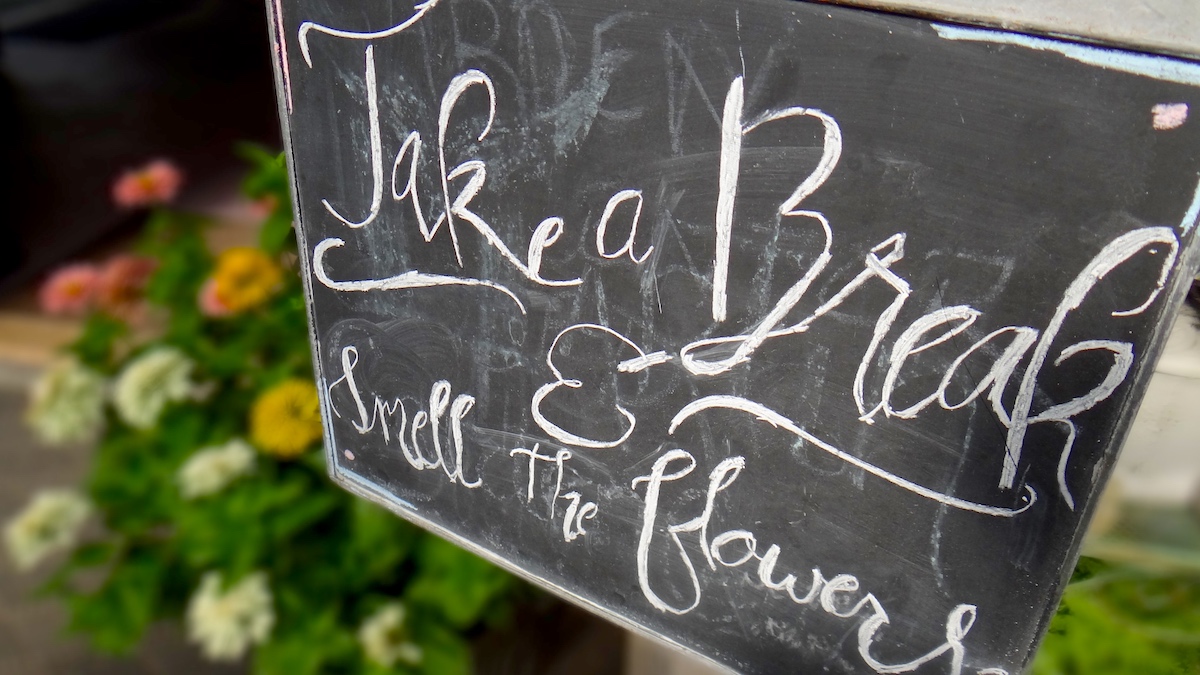 Take a Break
&
Smell The flowers